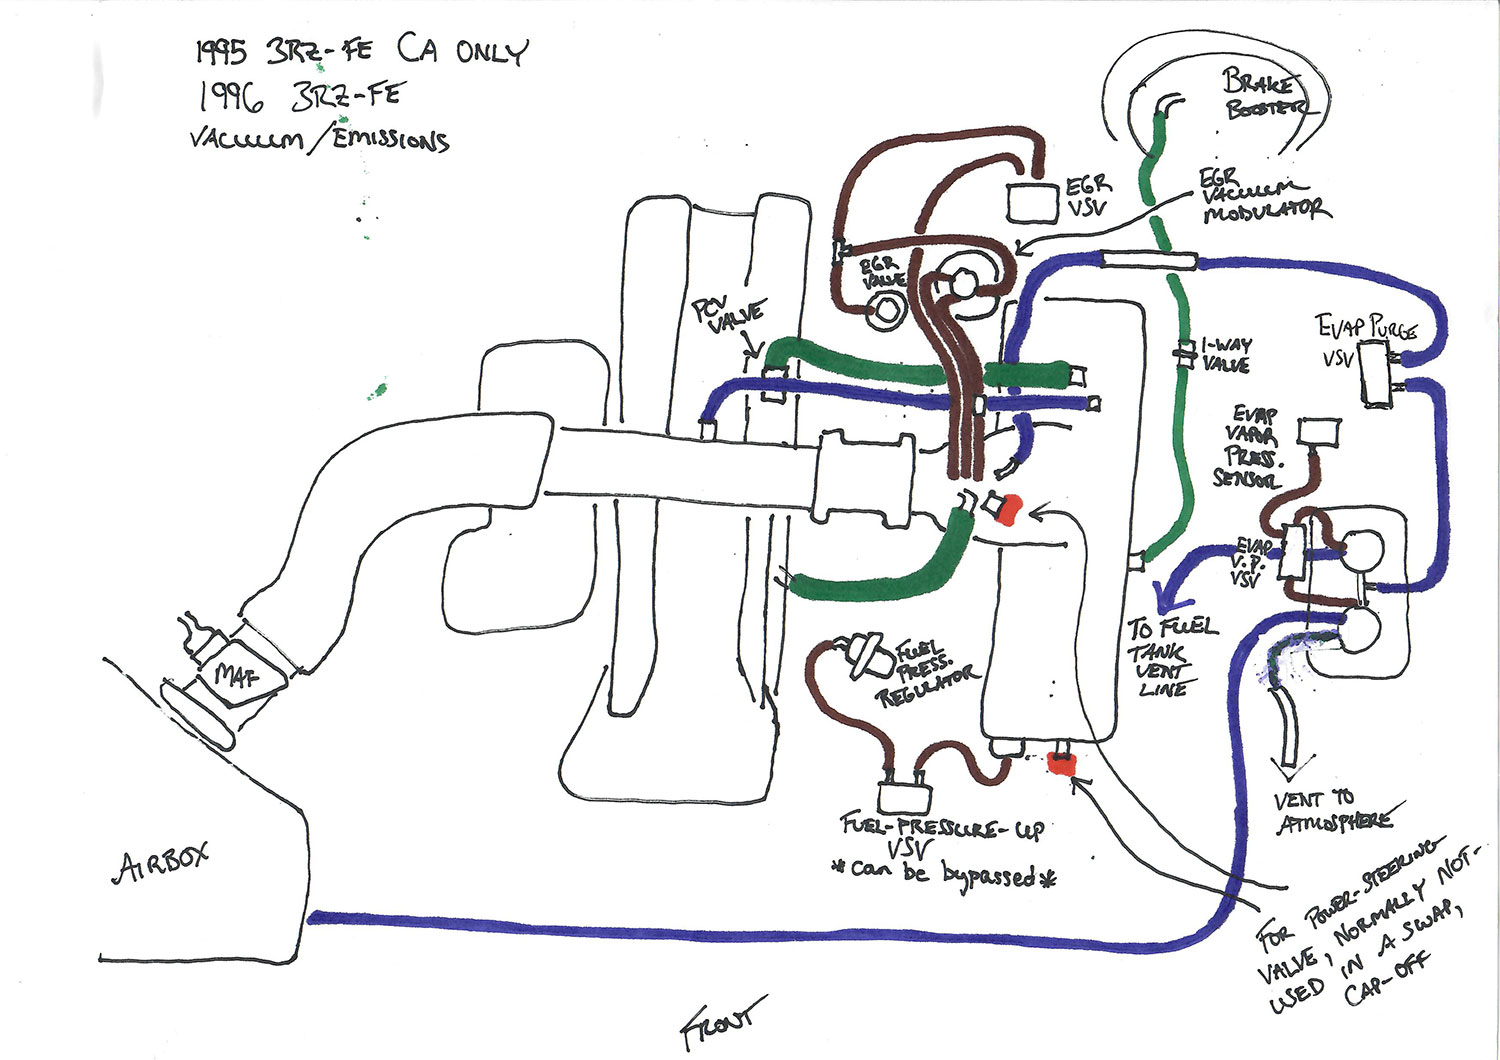 1995 3RZ-FE CA ONLY
1996 3RZ-FE
VACUUM/EMISSIONS
BRAKE
BOOSTER
EGR
VSV
EGR
VACUUM
MODULATOR
EGR
VALVE
PCV
VALVE
1-WAY
VALVE
EVAP PURGE
VSV
EVAP
VAPOR
PRESS.
SENSOR
EVAP
V.P.
VSV
TO FUEL
TANK
VENT
LINE
FUEL
PRESS.
REGULATOR
MAF
AIRBOX
FUEL-PRESSURE-UP
VSV
*can be bypassed*
VENT TO
ATMOSPHERE
FOR POWER-STEERING
VALVE, NORMALLY NOT-
USED IN A SWAP,
CAP-OFF
FRONT